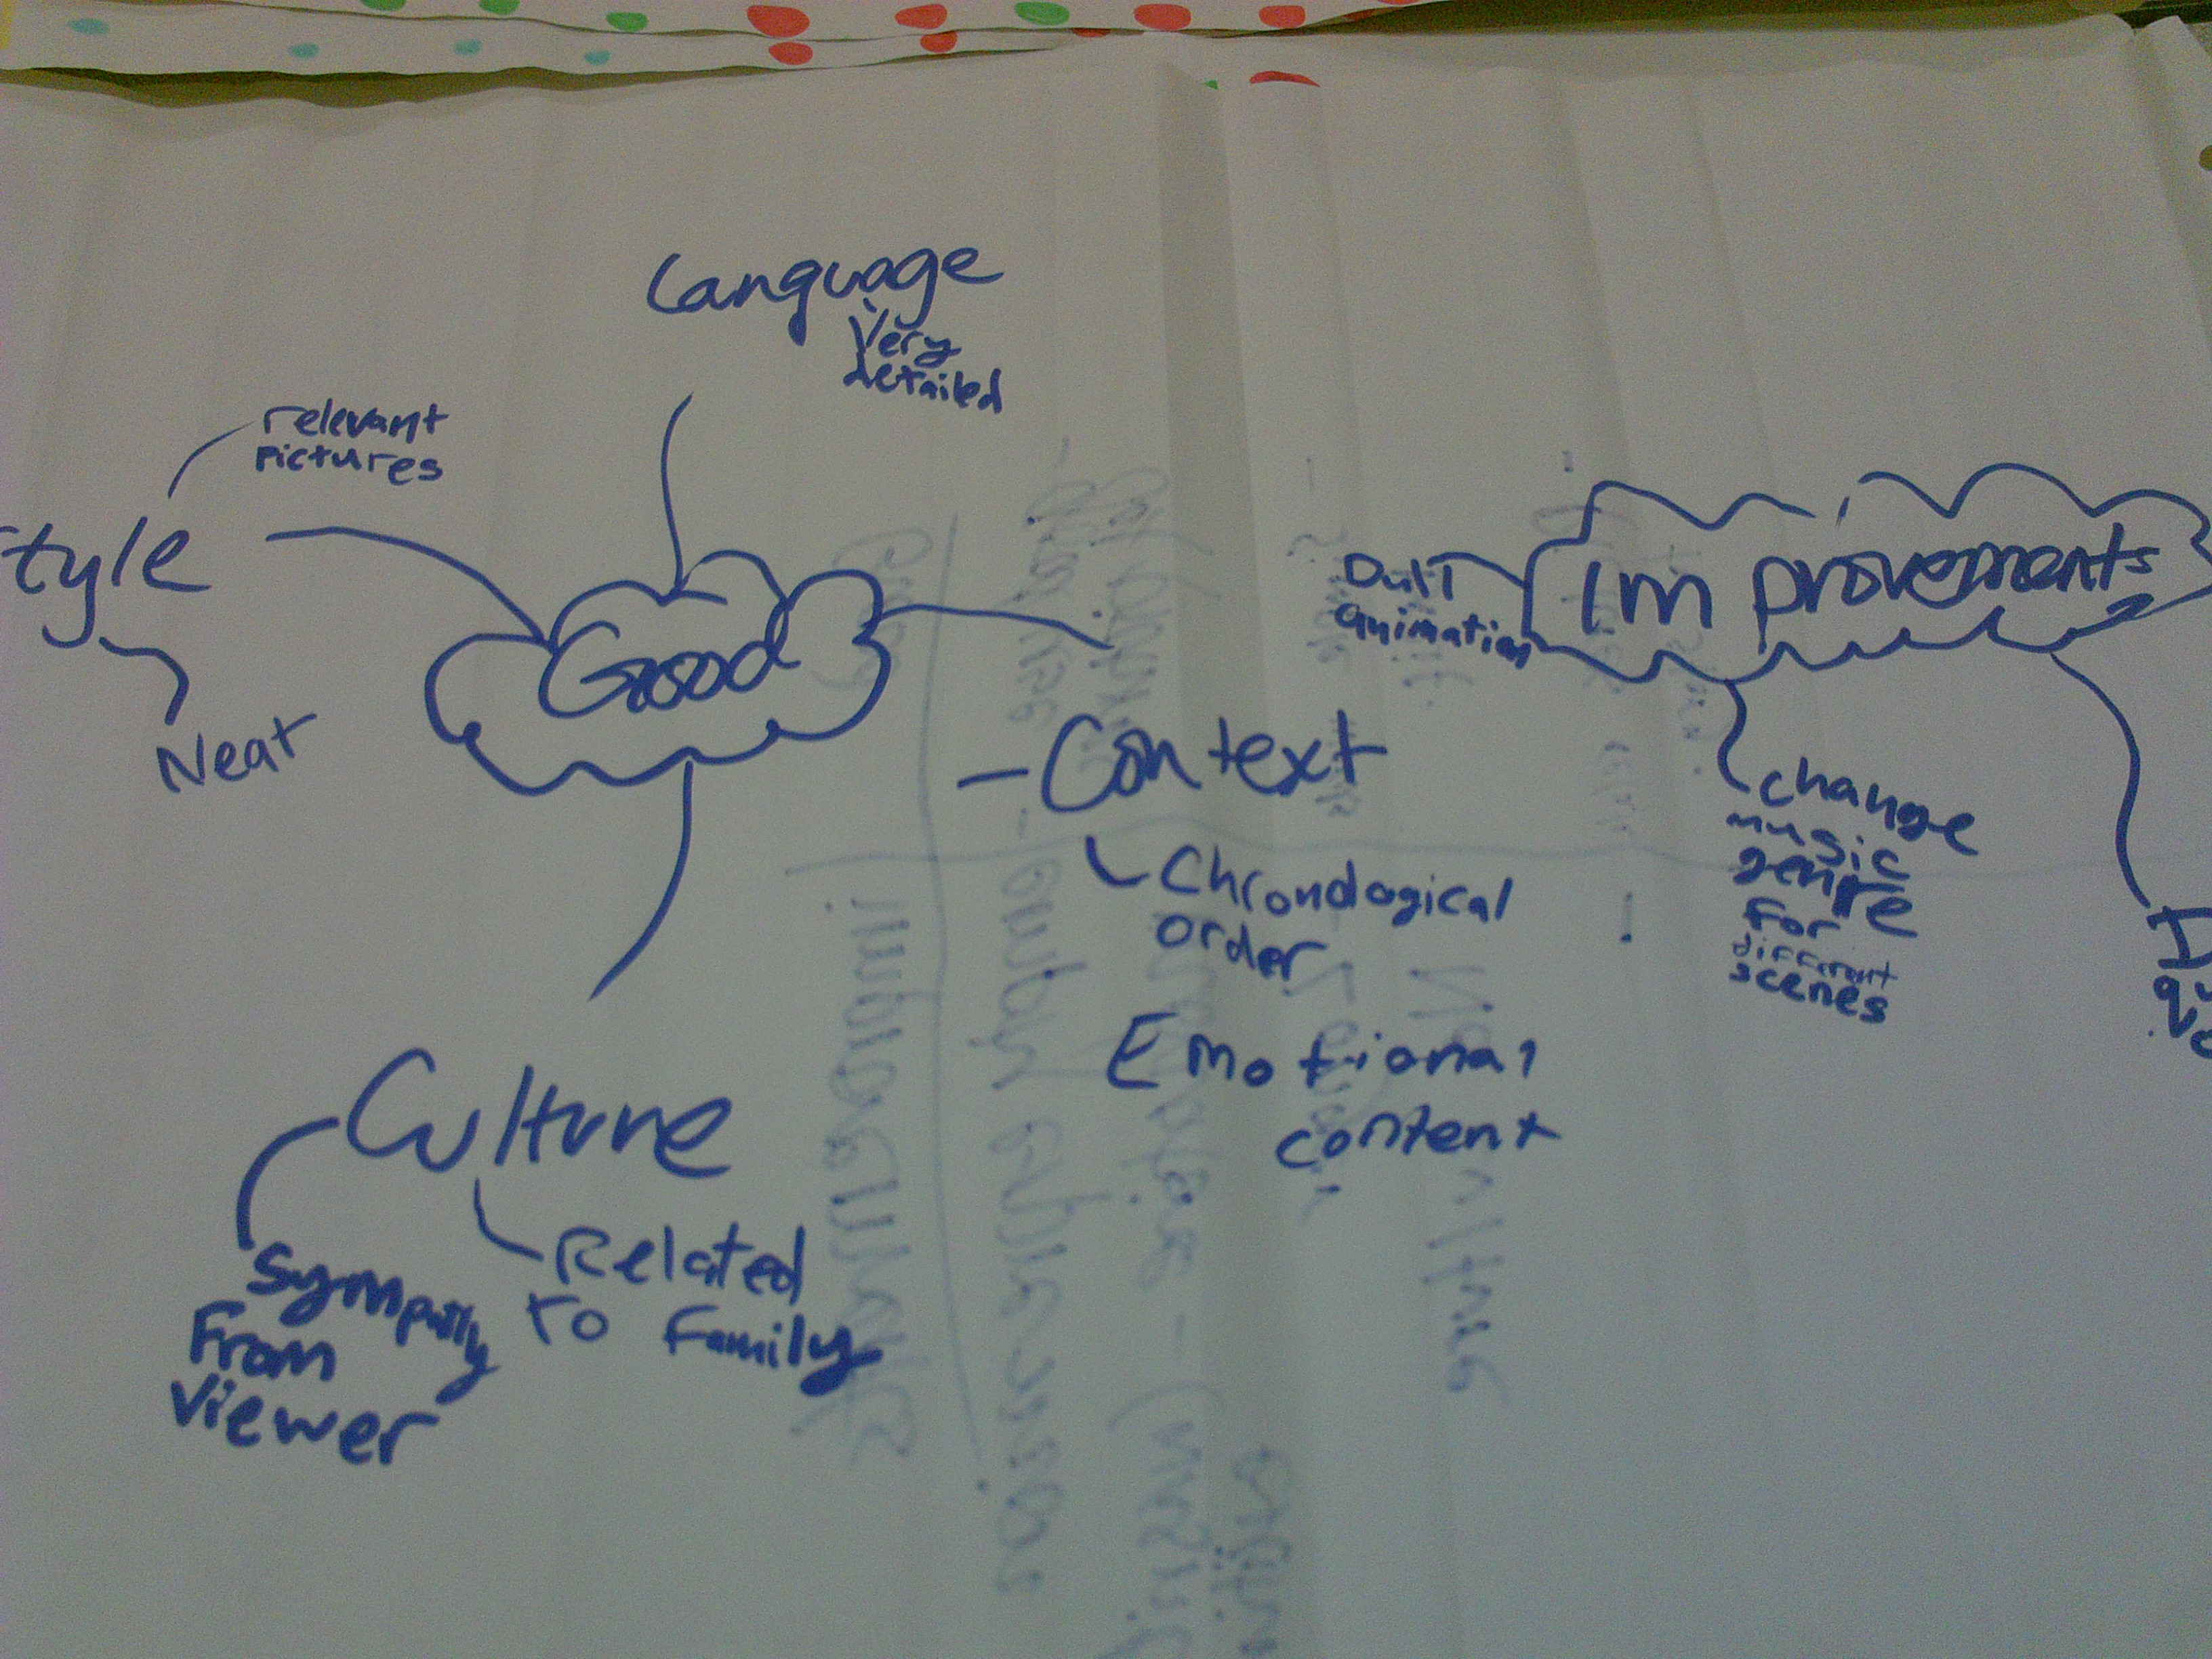 Language
Very
detailed
relevant
pictures
tyle
Neat
Good
Context
Chronological
order
Emotional
content
Culture
Sympathy
From
Viewer
Related
to Family
Improvements
Dull
animation
change
music
genre
For
different
scenes